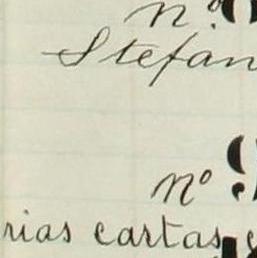 n.º
Stefan
nº 9
rias cartas